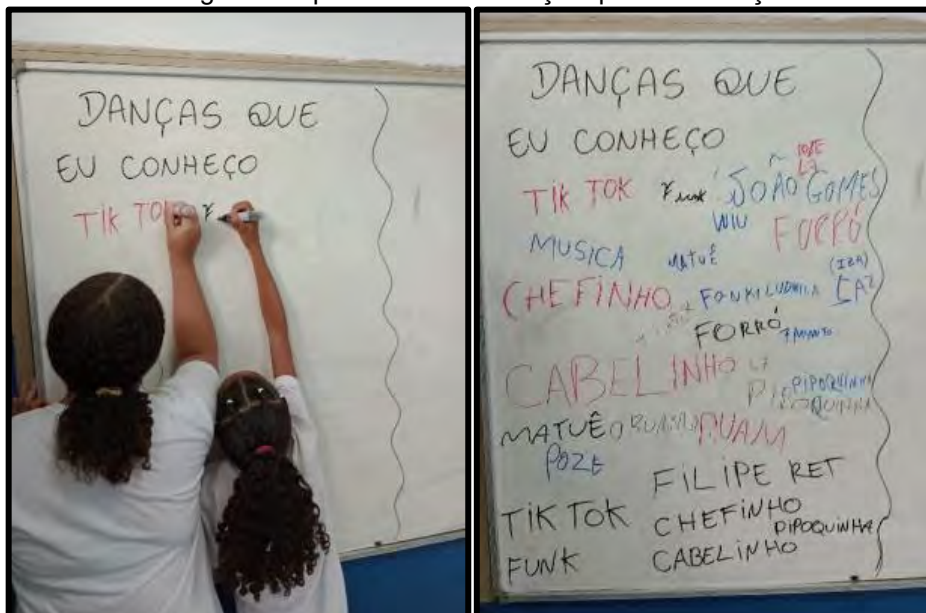 DANÇAS QUE
EU CONHEÇO
TIK TOK
DANÇAS QUE
EU CONHEÇO
TIK TOK Funk JOÃO GOMES
L7
WIU FORRÓ
MUSICA MATUÊ
(IZA)
CHEFINHO FONKI LUDMILA
FORRÓ 7 MINUTO
CABELINHO L7
PIPOQUINHA
PIPOQUINHA
MATUÊ RUAM
POZE
FILIPE RET
TIK TOK CHEFINHO
PIPOQUINHA
FUNK CABELINHO